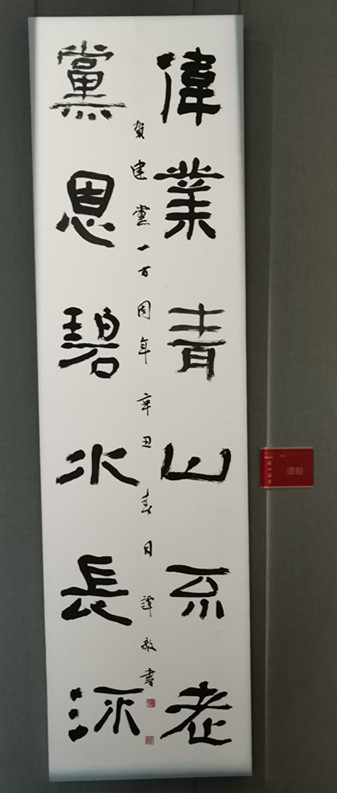 偉業青山不老
黨恩碧水長流
賀建黨一百周年辛丑春日譚書